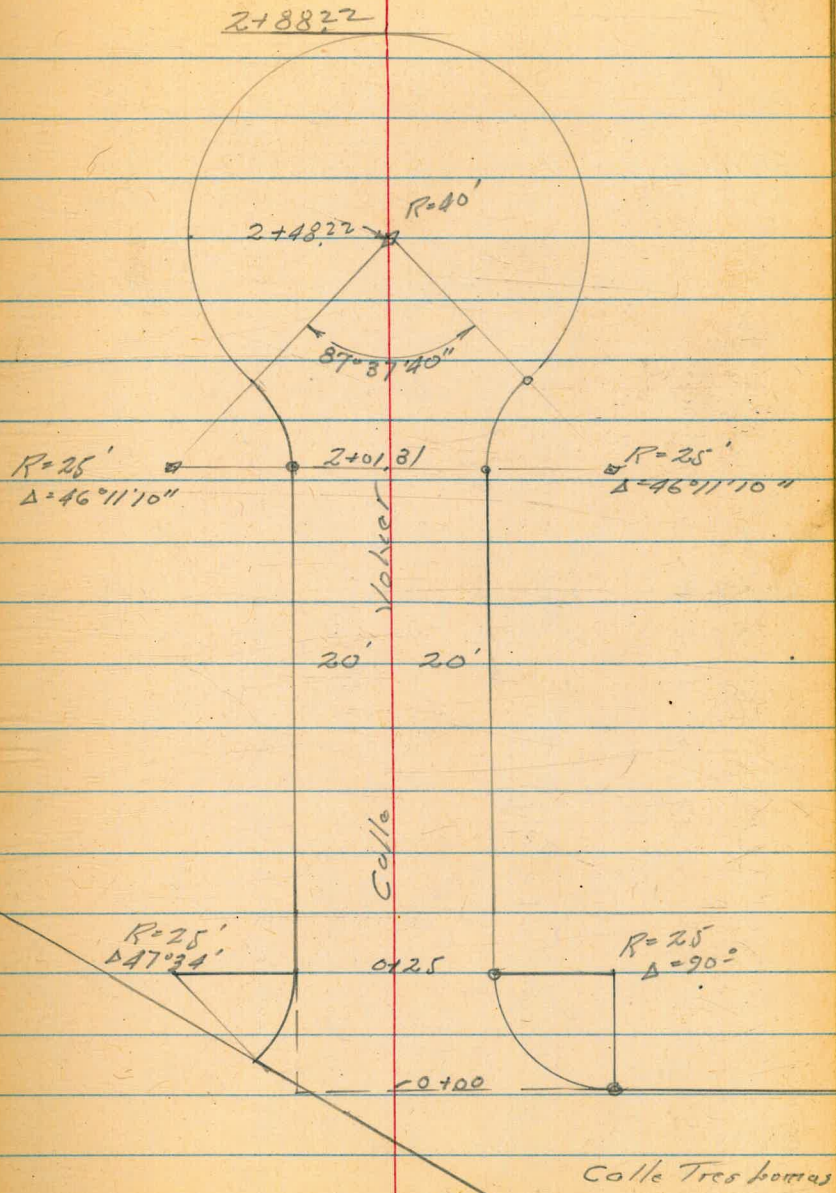 2+88.22
R=40'
2+48.22
87°37'40"
R=25'
Δ=46°11'10"
2+01.31
R=25'
Δ=46°11'10"
Calle Volver
20' 20'
R=25'
Δ47°34'
0+25
R=25
Δ=90°
0+00
Calle Tres Lomas